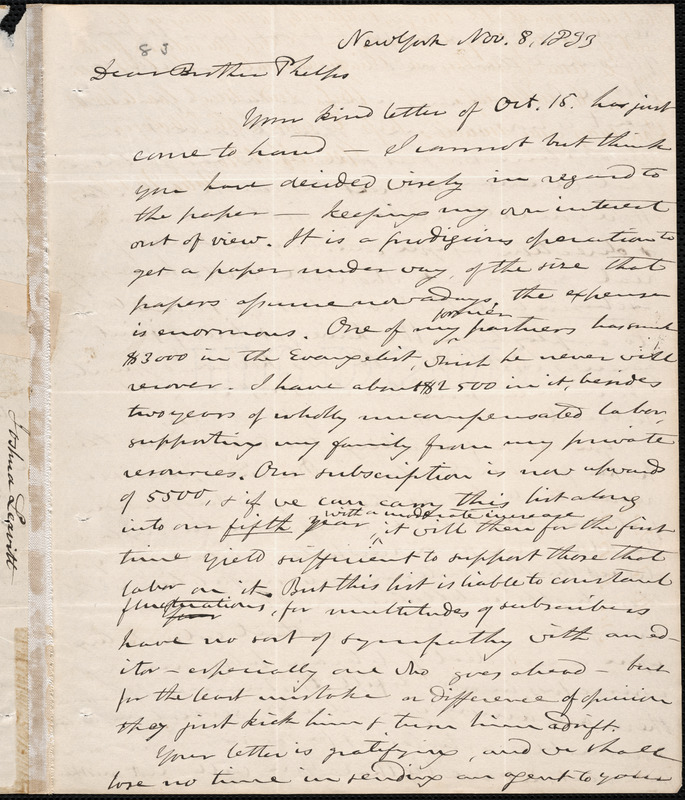 83
New York Nov. 8, 1833
Dear Brother Phelps
Your kind letter of Oct. 15. has just
come to hand — I cannot but think
you have decided wisely in regard to
the paper — keeping my own interest
out of view. It is a prodigious operation to
get a paper under way, of the size that
papers assume now adays, the expense
is enormous. One of my former partners has sunk
$3000 in the Evangelist, which he never will
recover. I have about $2500 in it, besides
two years of wholly uncompensated labor,
supporting my family from my private
resources. Our subscription is now upwards
of 5500, & if we can carry this list along
into our fifth year with a moderate increase, it will then for the first
time yield sufficient to support those that
labor on it. But this list is liable to constant
fluctuations, for multitudes of subscribers
have no sort of sympathy with an ed-
itor — especially one who goes ahead — but
for the least mistake or difference of opinion
they just kick him & turn him adrift.
Your letter is gratifying, and we shall
lose no time in sending an agent to your
Joshua Leavitt